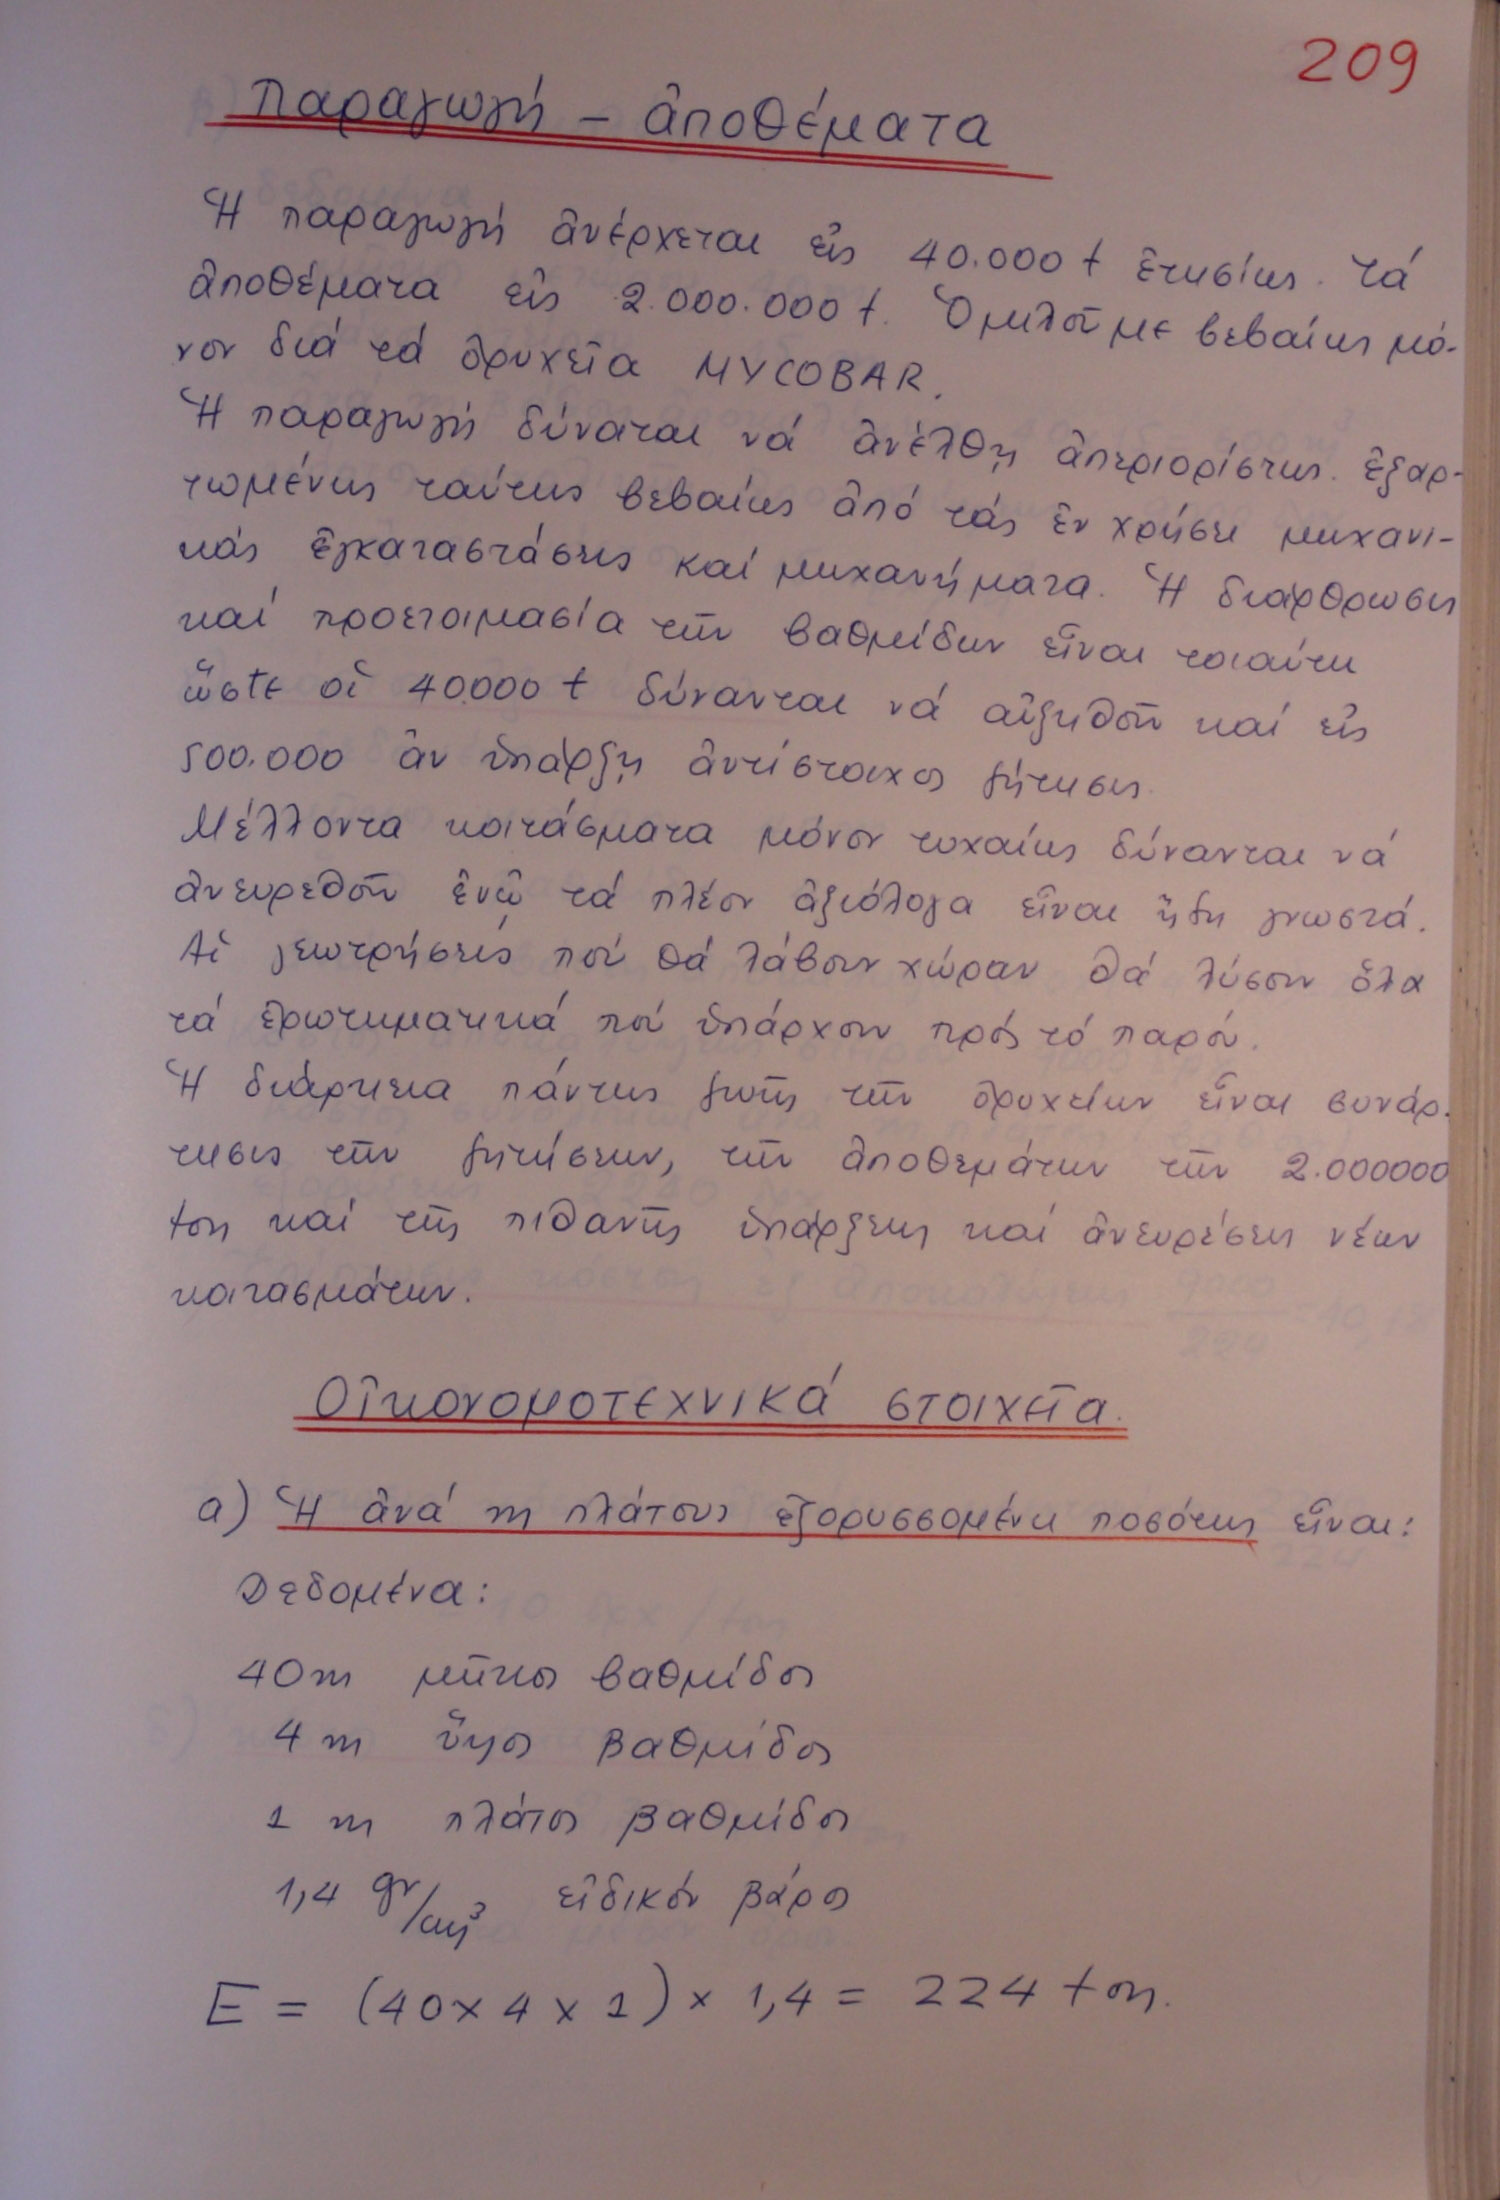 209
Παραγωγή – ἀποθέματα
Ἡ παραγωγή ἀνέρχεται εἰς 40.000 t ἐτησίως. τά
ἀποθέματα εἰς 2.000.000 t. Ὁμιλοῦμε βεβαίως μό-
νον διά τά ὀρυχεῖα MYCOBAR.
Ἡ παραγωγή δύναται νά ἀνέλθῃ ἀπεριορίστως. ἐξαρ-
τωμένης ταύτης βεβαίως ἀπό τάς ἐν χρήσει μηχανι-
κάς ἐγκαταστάσεις καί μηχανήματα. Ἡ διάρθρωσις
καί προετοιμασία τῶν βαθμίδων εἶναι τοιαύτη
ὥστε οἱ 40000 t δύνανται νά αὐξηθοῦν καί εἰς
500.000 ἄν ὑπάρξῃ ἀντίστοιχος ζήτησις.
Μέλλοντα κοιτάσματα μόνον τυχαίως δύνανται νά
ἀνευρεθοῦν ἐνῷ τά πλέον ἀξιόλογα εἶναι ἤδη γνωστά.
Αἱ γεωτρήσεις πού θά λάβουν χώραν θά λύσουν ὅλα
τά ἐρωτηματικά πού ὑπάρχουν πρός τό παρόν.
Ἡ διάρκεια πάντως ζωῆς τῶν ὀρυχείων εἶναι συνάρ-
τησις τῶν ζητήσεων, τῶν ἀποθεμάτων τῶν 2.000000
ton καί τῆς πιθανῆς ὑπάρξεως καί ἀνευρέσεως νέων
κοιτασμάτων.
Οἰκονομοτεχνικά στοιχεῖα.
α) Ἡ ἀνά m πλάτους ἐξορυσσομένη ποσότης εἶναι:
Δεδομένα:
40 m μῆκος βαθμίδος
4 m ὕψος βαθμίδος
1 m πλάτος βαθμίδος
1,4 gr/cm³ εἰδικόν βάρος
E = (40 x 4 x 1) x 1,4 = 224 ton.